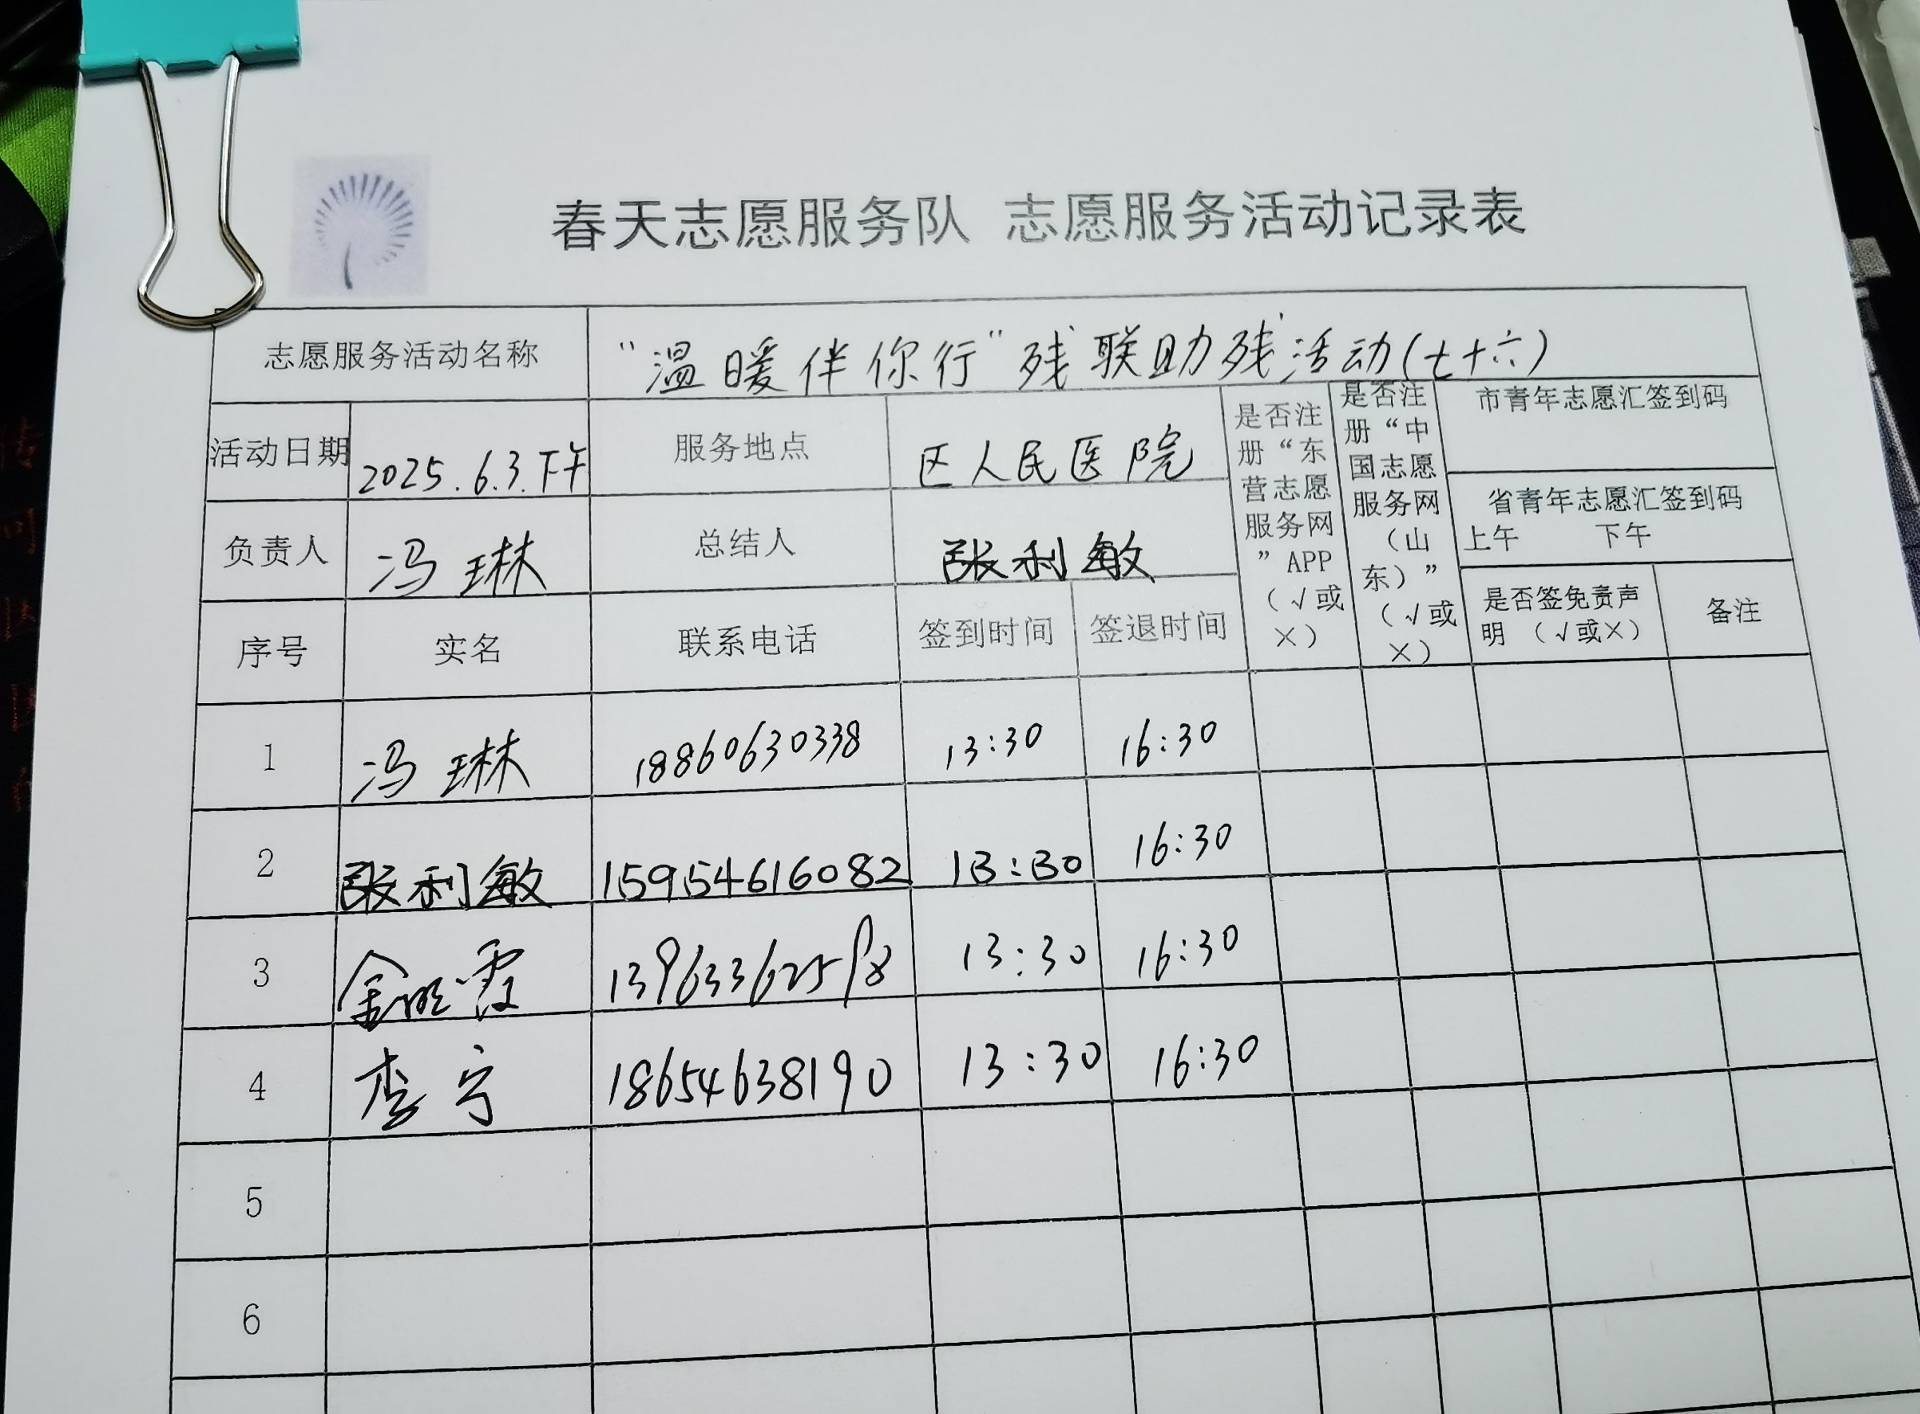 春天志愿服务队 志愿服务活动记录表
志愿服务活动名称 “温暖伴你行”残联助残活动(七十六)
活动日期 2025.6.3.下午 服务地点 区人民医院
是否注册“东营志愿服务网”APP（√或×）
是否注册“中国志愿服务网（山东）”（√或×）
市青年志愿汇签到码
省青年志愿汇签到码
上午 下午
负责人 冯琳 总结人 张利敏
序号 实名 联系电话 签到时间 签退时间 是否签免责声明（√或×） 备注
1 冯琳 18860630338 13:30 16:30
2 张利敏 15954616082 13:30 16:30
3 金晓霞 13:30 16:30
4 李宁 18654638190 13:30 16:30
5
6